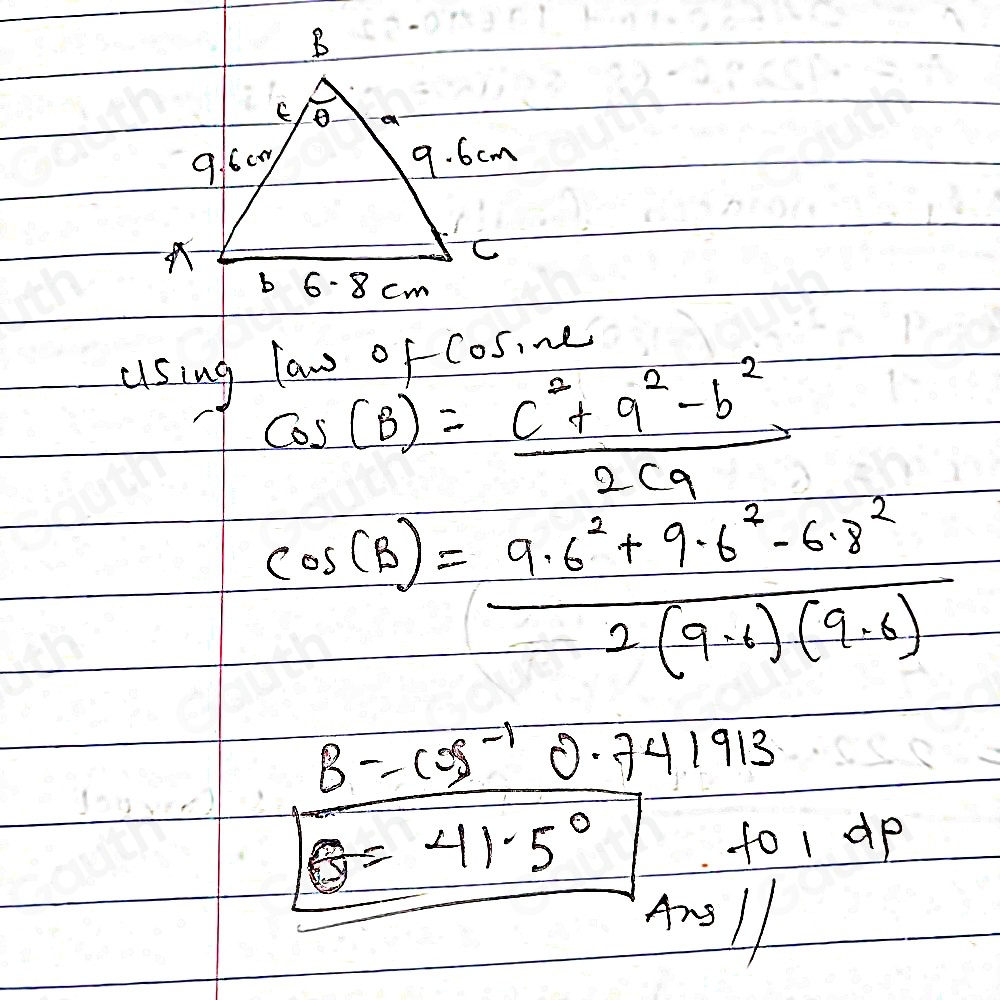 B
c θ a
9.6cm 9.6cm
A C
b 6.8 cm
Using law of Cosine
Cos (B) = c² + a² - b²
2ca
cos (B) = 9.6² + 9.6² - 6.8²
2 (9.6) (9.6)
B = cos⁻¹ 0.741913
θ = 41.5° to 1 dp
Ans //